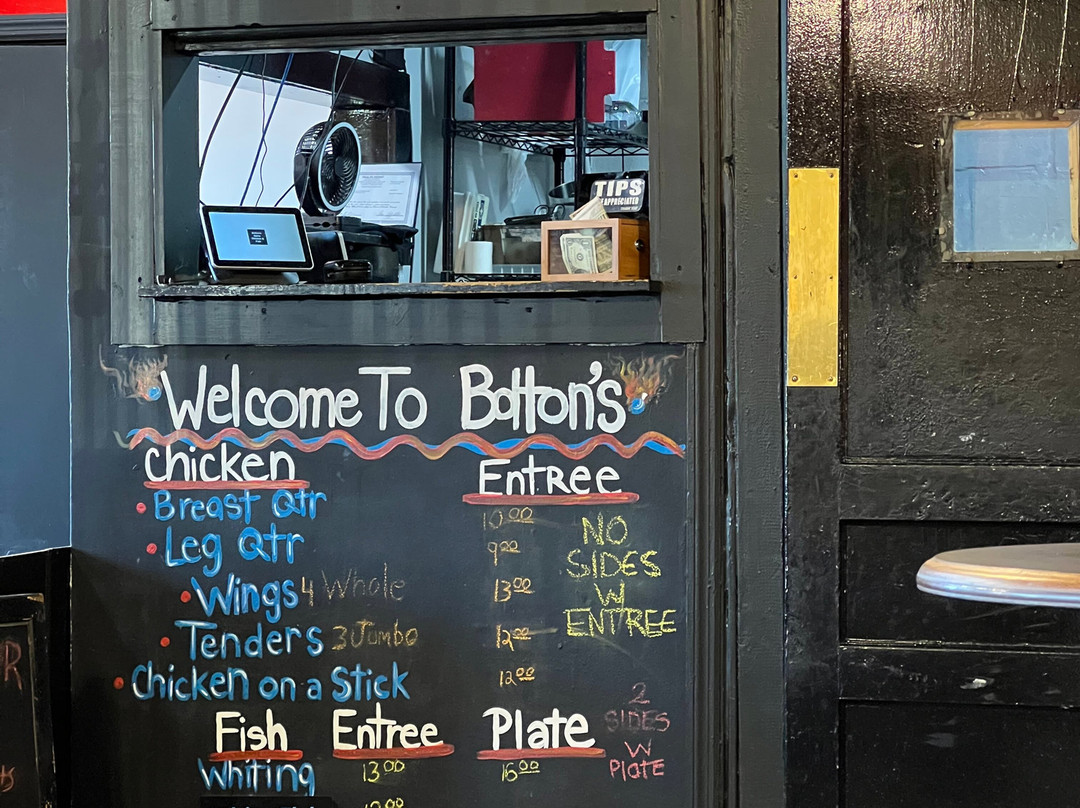 TIPS
APPRECIATED
Welcome To Bolton's
Chicken
Entree
Breast Qtr 10.00
Leg Qtr 9.00
Wings 4 Whole 13.00
Tenders 3 Jumbo 12.00
Chicken on a Stick 12.00
NO
SIDES
W
ENTREE
Fish Entree Plate
Whiting 13.00 16.00
2
SIDES
W
PLATE
R